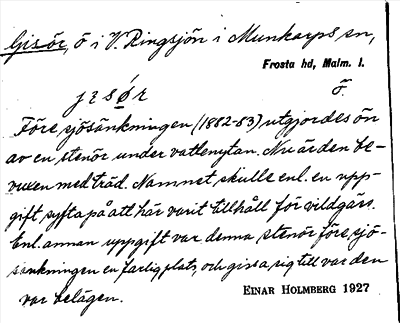 Gisör, ö i V. Ringsjön i Munkarps sn,
Frosta hd, Malm. l.
ö.
Före sjösänkningen (1882-83) utgjordes ön
av en stenör under vattenytan. Nu är den be-
vuxen med träd. Namnet skulle enl. en upp-
gift syfta på att här varit tillhåll för vildgäss.
Enl. annan uppgift var denna stenör före sjö-
sänkningen en farlig plats, och gissa sig till var den
var belägen.
EINAR HOLMBERG 1927